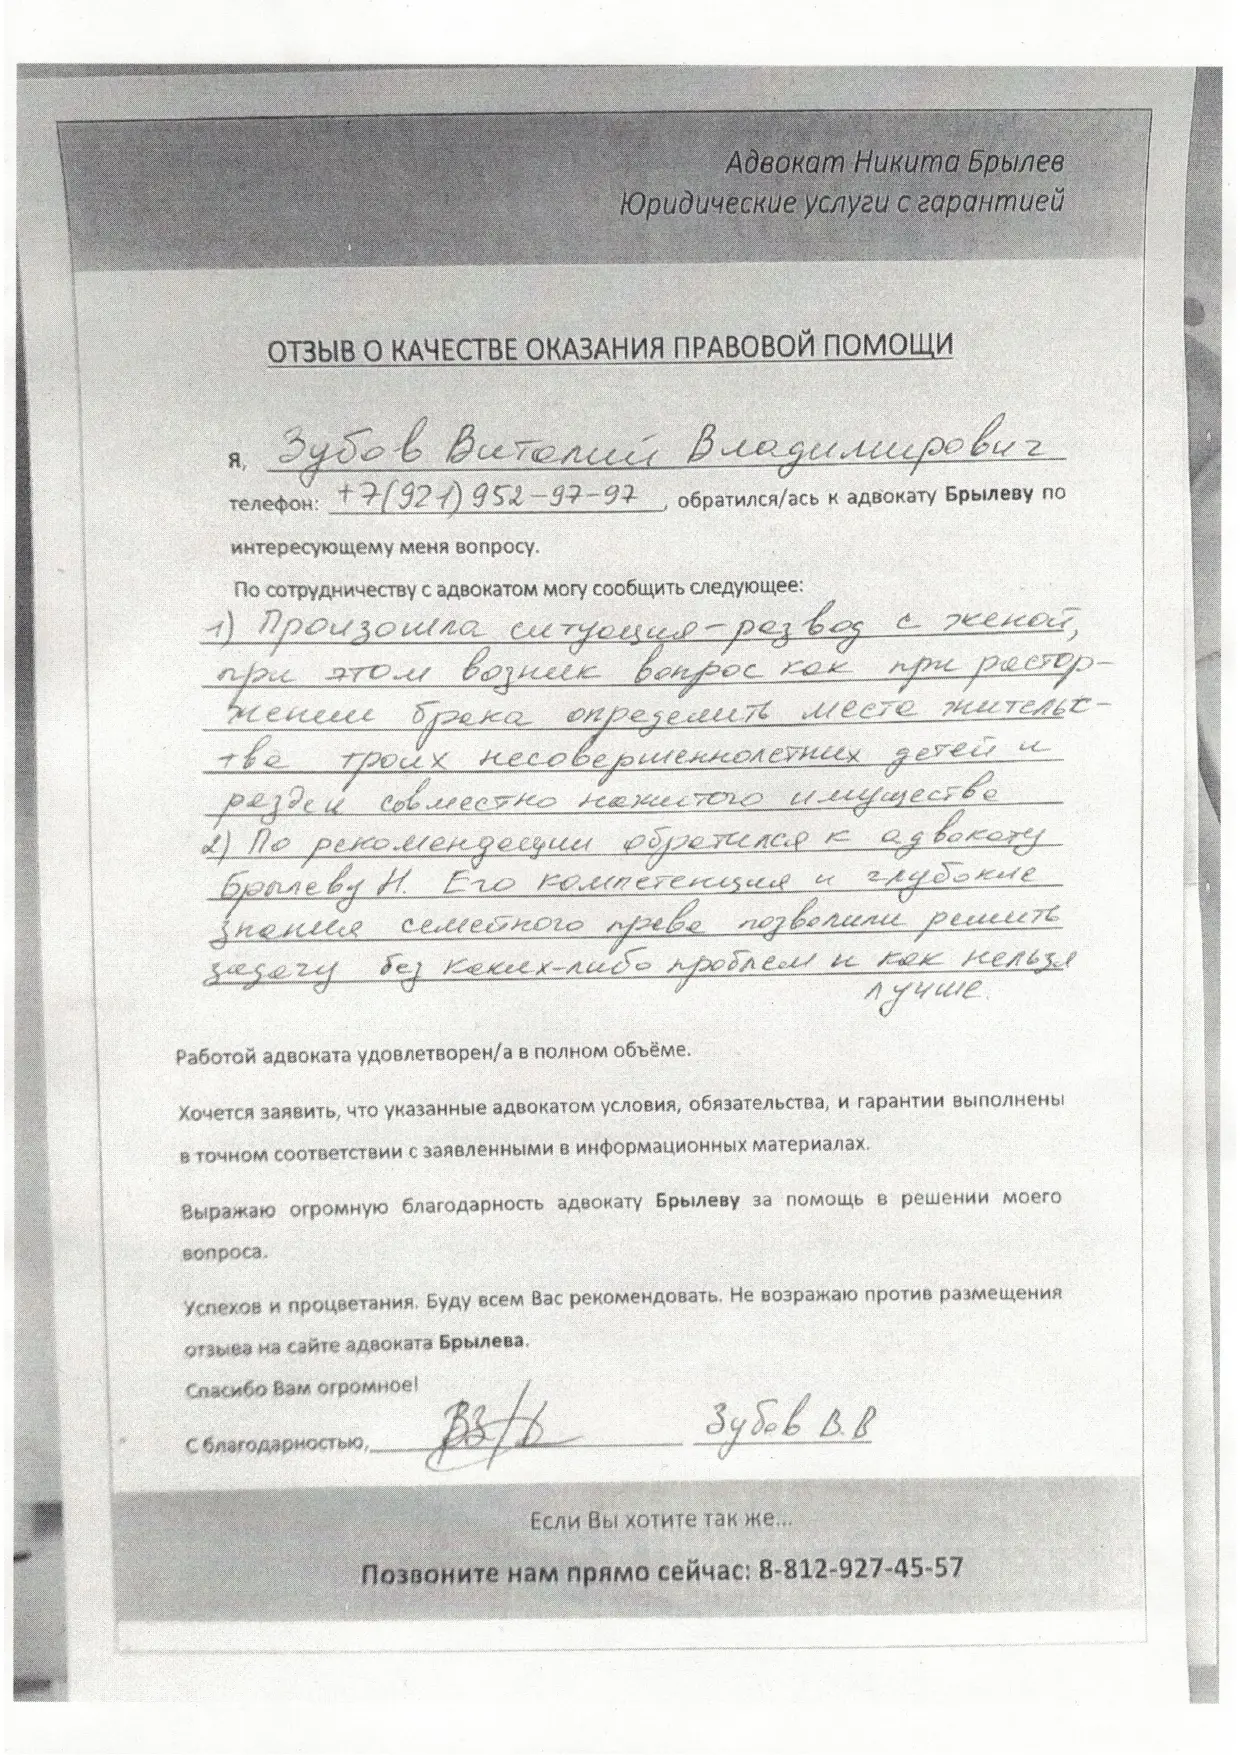 Адвокат Никита Брылев
Юридические услуги с гарантией
ОТЗЫВ О КАЧЕСТВЕ ОКАЗАНИЯ ПРАВОВОЙ ПОМОЩИ
Я, Зубов Виталий Владимирович
телефон: +7(921) 952-97-97, обратился/ась к адвокату Брылеву по
интересующему меня вопросу.
По сотрудничеству с адвокатом могу сообщить следующее:
1) Произошла ситуация-развод с женой,
при этом возник вопрос как при растор-
жении брака определить место жительс-
тва троих несовершеннолетних детей и
раздел совместно нажитого имущества
2) По рекомендации обратился к адвокату
Брылеву Н. Его компетенция и глубокие
знания семейного права позволили решить
задачу без каких-либо проблем и как нельзя
лучше.
Работой адвоката удовлетворен/а в полном объёме.
Хочется заявить, что указанные адвокатом условия, обязательства, и гарантии выполнены
в точном соответствии с заявленными в информационных материалах.
Выражаю огромную благодарность адвокату Брылеву за помощь в решении моего
вопроса.
Успехов и процветания. Буду всем Вас рекомендовать. Не возражаю против размещения
отзыва на сайте адвоката Брылева.
Спасибо Вам огромное!
С благодарностью, Зубов В.В
Если Вы хотите так же...
Позвоните нам прямо сейчас: 8-812-927-45-57